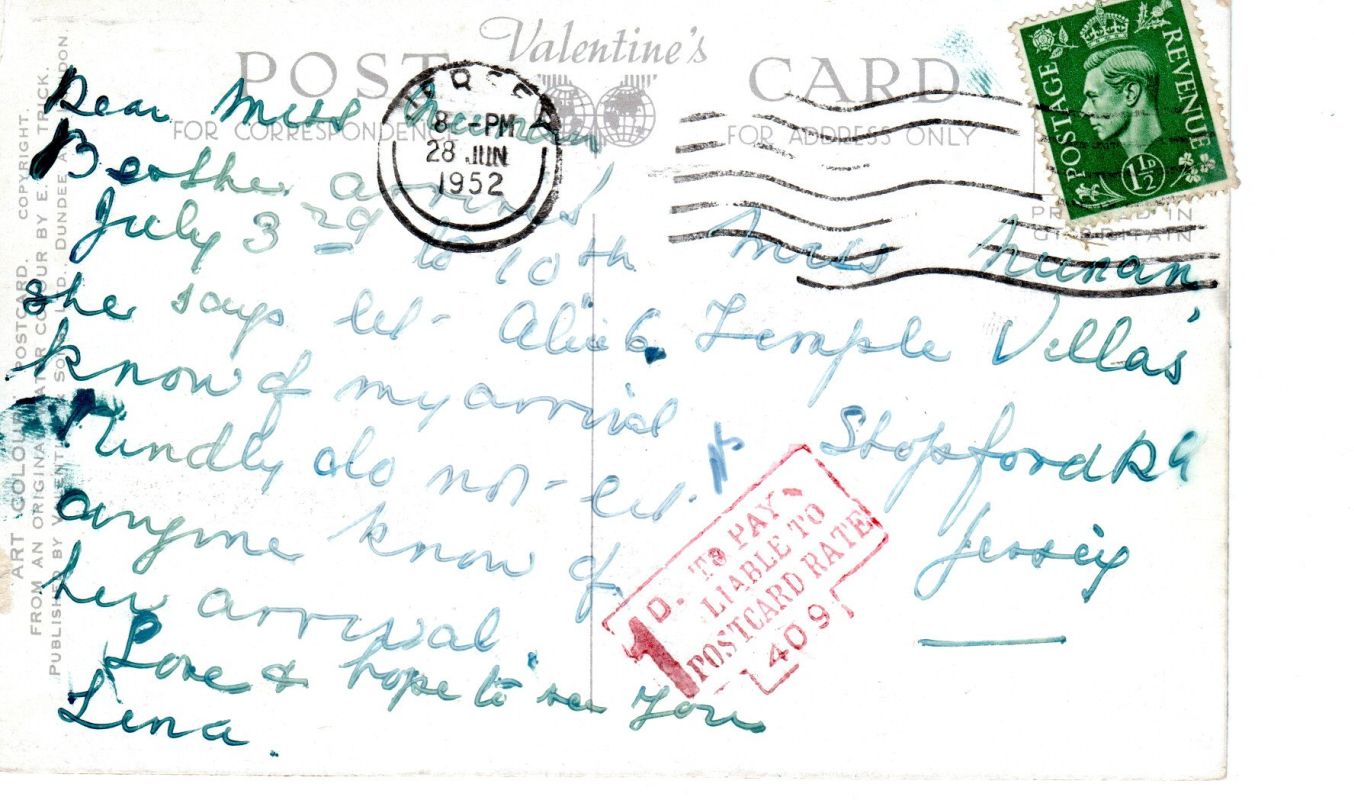 Valentine's
POST CARD
FOR CORRESPONDENCE
FOR ADDRESS ONLY
JERSEY
8 - PM
28 JUN
1952
POSTAGE REVENUE
1½D
PRINTED IN
GT. BRITAIN
Dear Miss Nunan
Berthe arrives
July 3rd to 10th
she says let Alice
know of my arrival
Kindly do not let
anyone know of
her arrival
Love & hope to see you
Lena.
Miss Nunan
6. Temple Villas
Stopford Rd
Jersey
1D. TO PAY
LIABLE TO
POSTCARD RATE
409
ART COLOUR POSTCARD. COPYRIGHT.
FROM AN ORIGINAL WATER COLOUR BY E. TRICK.
PUBLISHED BY VALENTINE & SONS, LTD., DUNDEE AND LONDON.